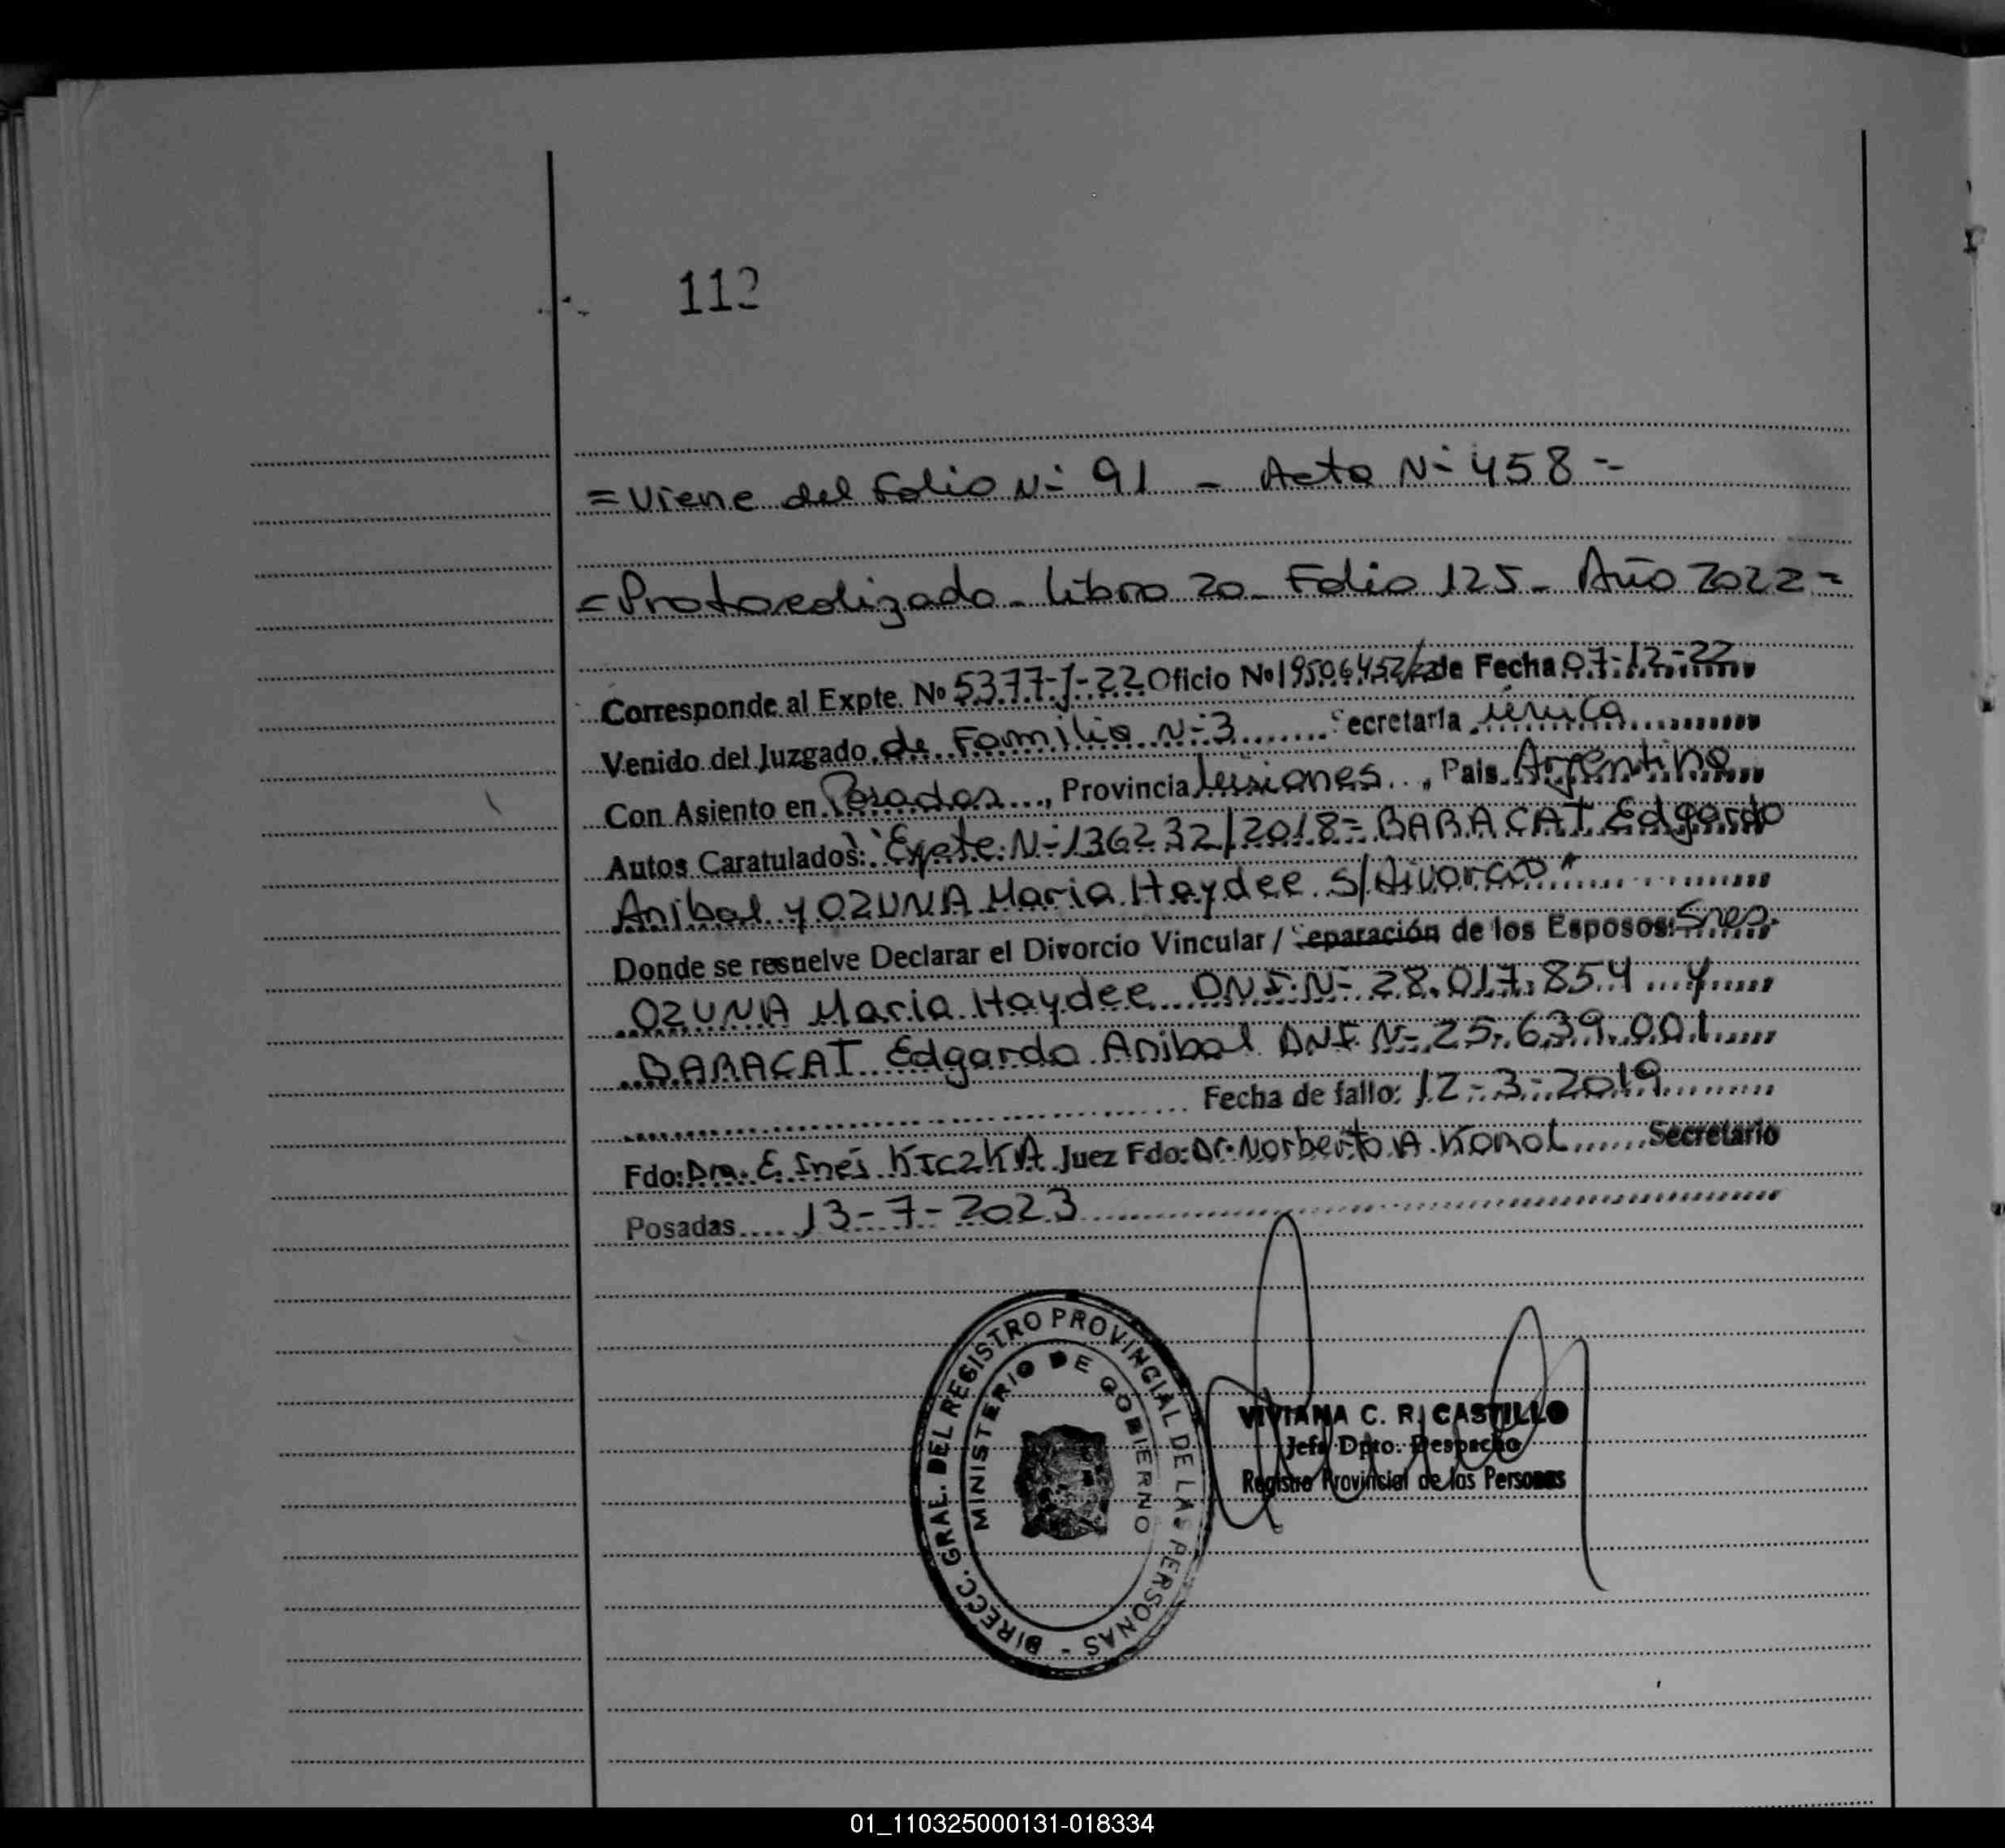 112
= Viene del Folio Nº 91 - Acta Nº 458 =
= Protocolizado - Libro 20 - Folio 125 - Año 2022 =
Corresponde al Expte. Nº 5377-J-22 Oficio Nº 19506452/22 de Fecha 07-12-22
Venido del Juzgado de Familia Nº 3 Secretaría única
Con Asiento en Posadas, Provincia Misiones, País Argentina
Autos Caratulados: "Expte. Nº 136232/2018 = BARACAT Edgardo
Anibal y OZUNA Maria Haydee s/Divorcio"
Donde se resuelve Declarar el Divorcio Vincular / Separación de los Esposos: Sres.
OZUNA Maria Haydee DNI Nº 28.017.854 y
BARACAT Edgardo Anibal DNI Nº 25.639.001
Fecha de fallo: 12-3-2019
Fdo: Dra. E. Inés KICZKA Juez Fdo: Dr. Norberto A. Korol Secretario
Posadas 13-7-2023
DIRECC. GRAL. DEL REGISTRO PROVINCIAL DE LAS PERSONAS -
MINISTERIO DE GOBIERNO
VIVIANA C. R. CASTILLO
Jefa Dpto. Despacho
Registro Provincial de las Personas
01_110325000131-018334